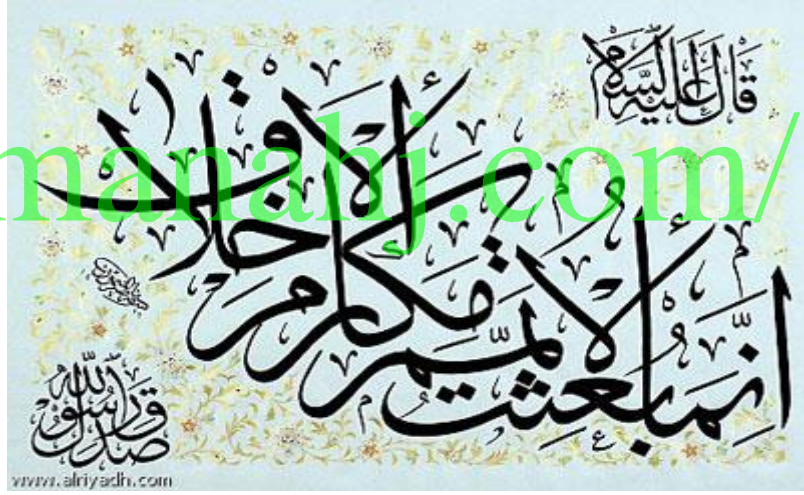 قال عليه السلام
إنما بعثت لأتمم مكارم الأخلاق
صدق رسول الله
manahj.com/
www.alriyadh.com